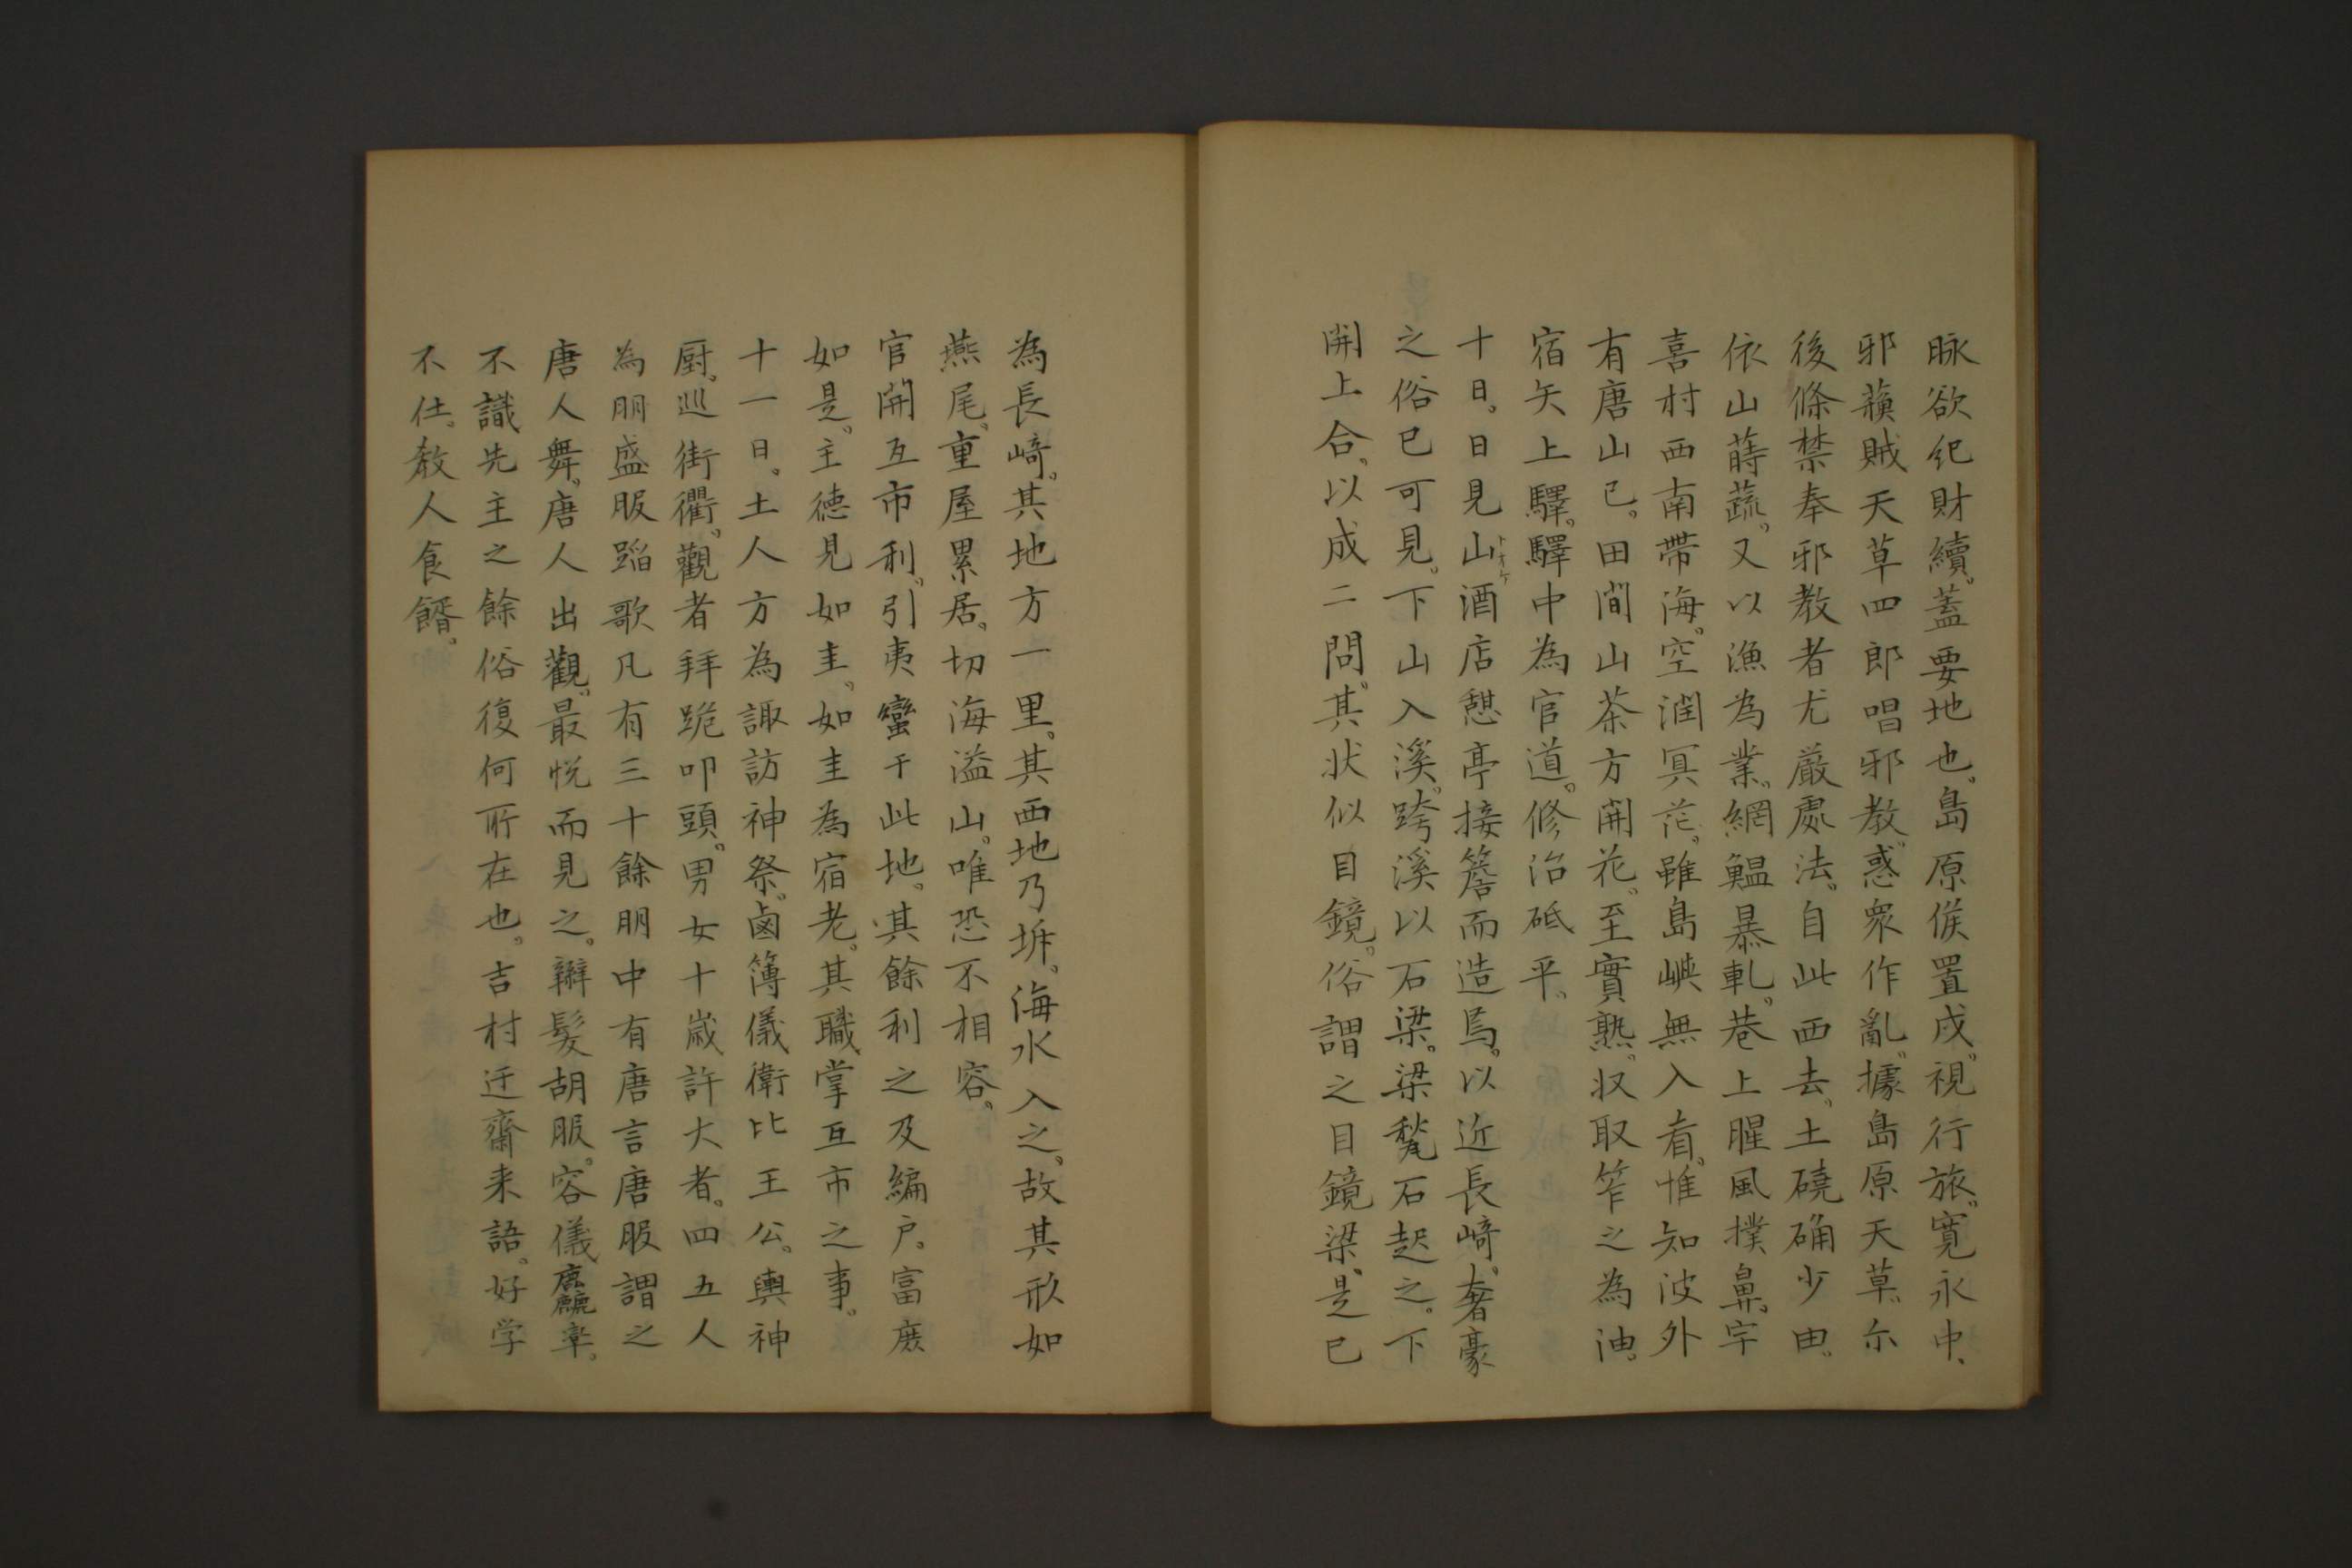 脉欲纪財續。蓋要地也。島原侯置戍。視行旅。寛永中、
邪蘓賊天草四郎唱邪教。惑衆作亂。據島原天草。尓
後條禁奉邪教者尤厳處法。自此西去。土磽确少田。
依山蒔蔬。又以漁為業。網鰛暴軋。巷上腥風撲鼻。宇
喜村西南帶海。空濶冥茫。雖島嶼無入看。惟知波外
有唐山已。田間山茶方開花。至實熟。収取笮之為油。
宿矢上驛。驛中為官道。修治砥平。
十日。日見山酒店憩亭接簷而造焉。以近長﨑。奢豪
之俗已可見。下山入溪。跨溪以石梁。梁甃石起之。下
開上合。以成二問。其状似目鏡。俗謂之目鏡梁。是已
為長﨑。其地方一里。其西地乃坼。海水入之。故其形如
燕尾。重屋累居。切海溢山。唯恐不相容。
官開互市利。引夷蠻于此地。其餘利之及編戸。富庶
如是。主德見如圭。如圭為宿老。其職掌互市之事。
十一日。土人方為諏訪神祭。鹵簿儀衛比王公。輿神
厨。巡街衢。觀者拜跪叩頭。男女十歳許大者。四五人
為朋盛服蹈歌凡有三十餘朋中有唐言唐服謂之
唐人舞。唐人出觀。最悦而見之。辮髮胡服。容儀麤率。
不識先主之餘俗復何所在也。吉村迂齋来語。好学
不仕。教人食餾。
トオケ